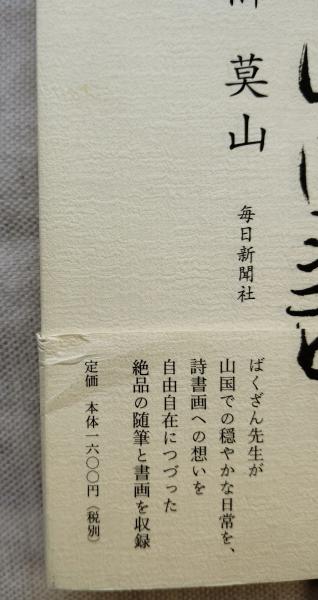 莫山
毎日新聞社
ばくざん先生が
山国での穏やかな日常を、
詩書画への想いを
自由自在につづった
絶品の随筆と書画を収録
定価 本体一六〇〇円(税別)